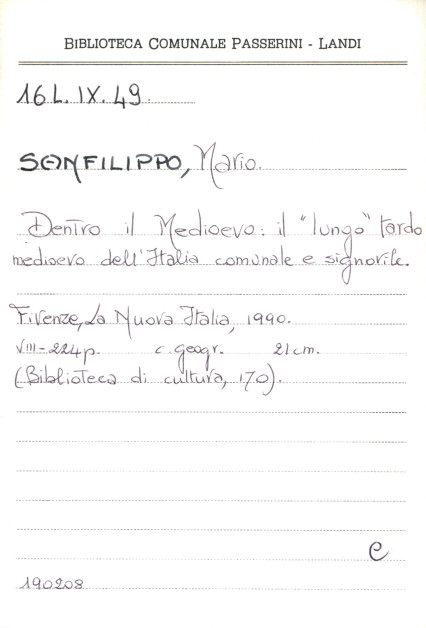 BIBLIOTECA COMUNALE PASSERINI - LANDI
16 L. IX. 49.
SANFILIPPO, Mario.
Dentro il Medioevo: il "lungo" tardo
medioevo dell'Italia comunale e signorile.
Firenze, La Nuova Italia, 1990.
VIII-224p. c. geogr. 21 cm.
(Biblioteca di cultura, 170).
C
190208